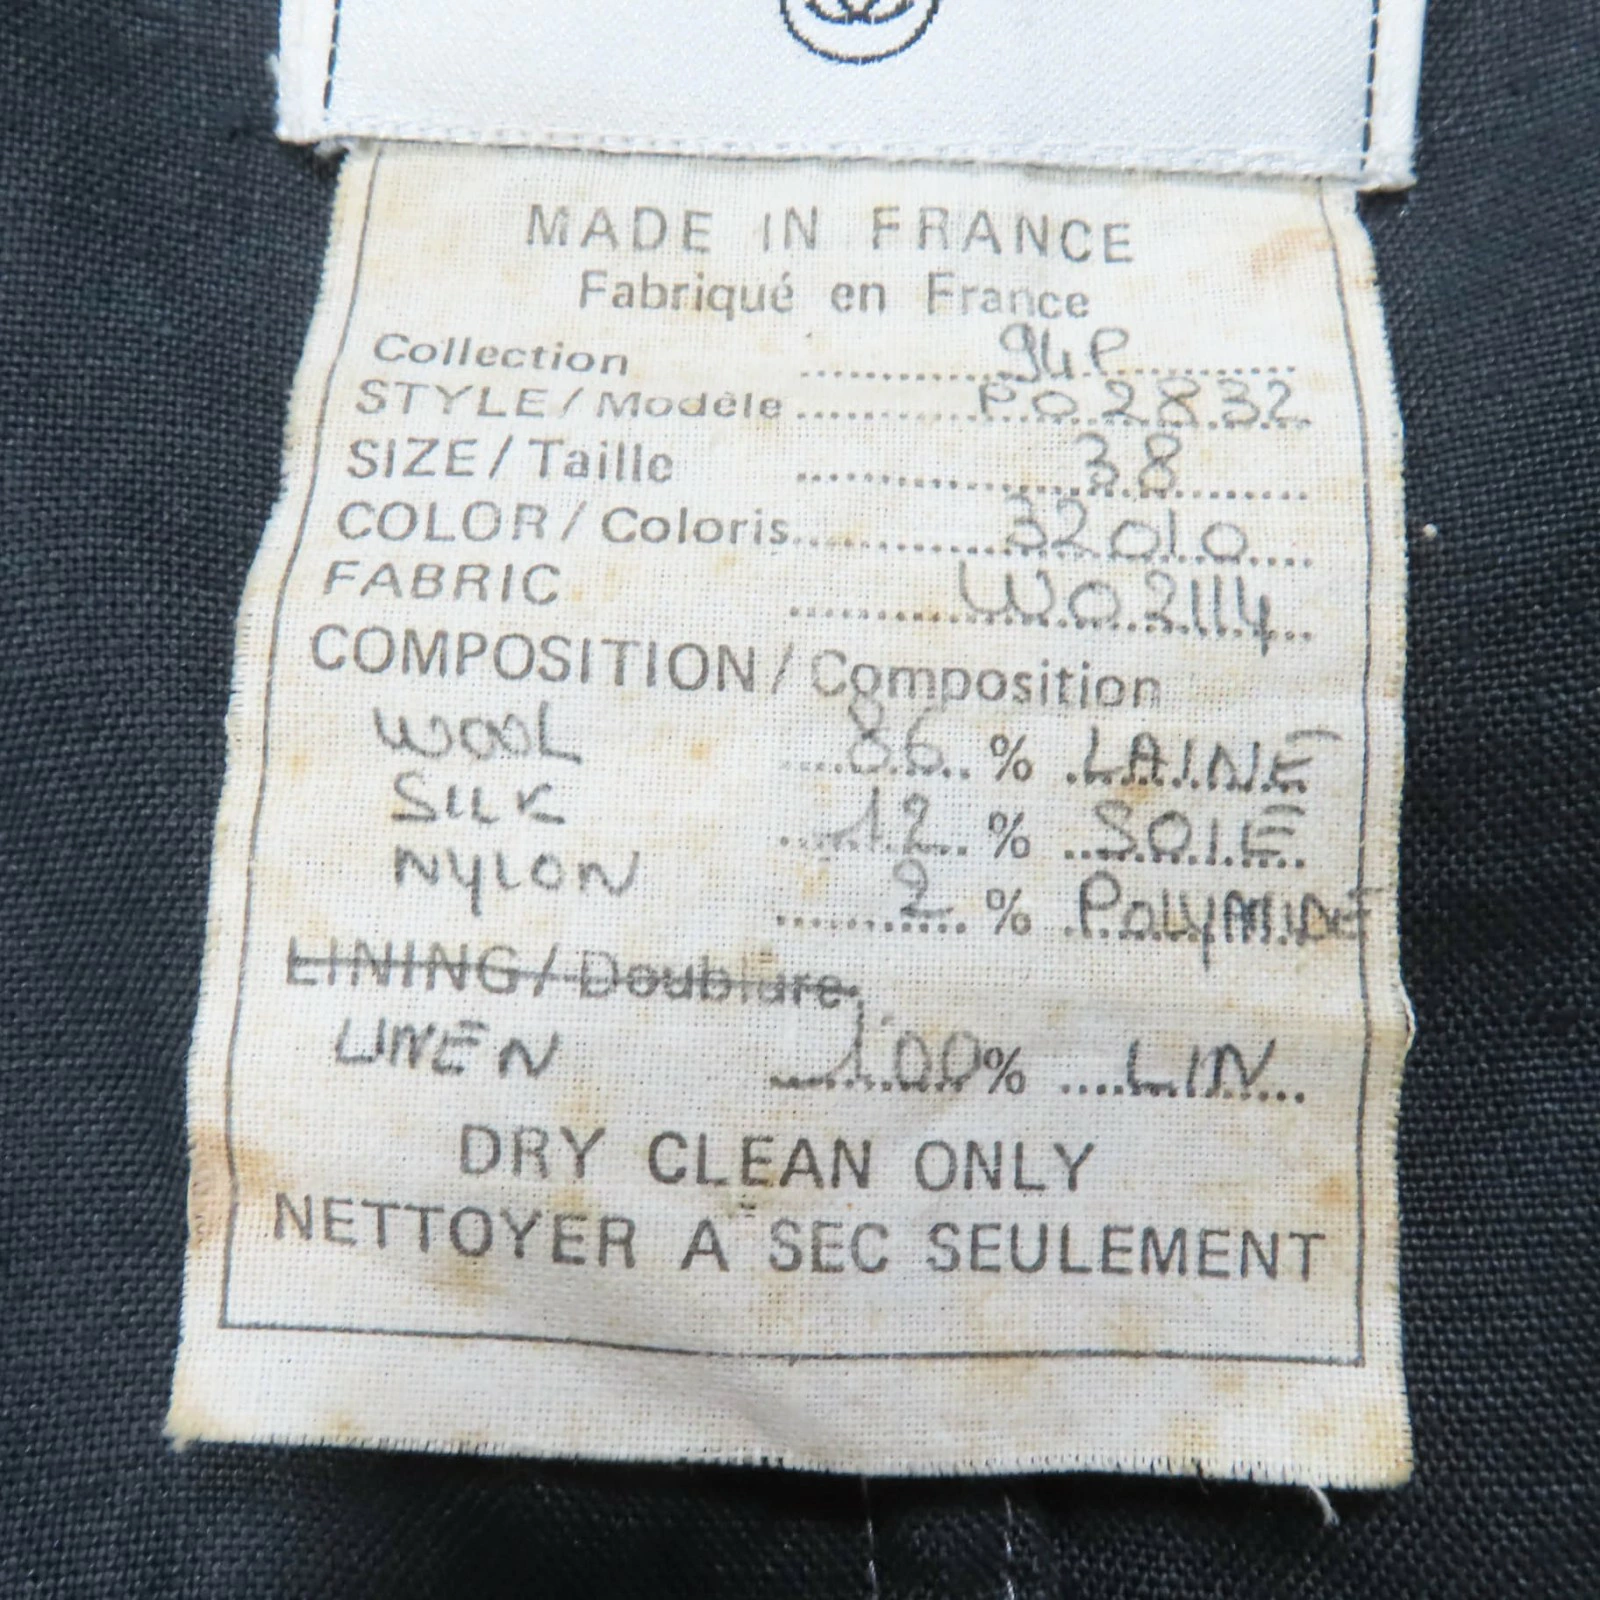 MADE IN FRANCE
Fabriqué en France
Collection ........ 94P ........
STYLE / Modèle ........ P02832
SIZE / Taille ........ 38 ........
COLOR / Coloris ........ 32010 ....
FABRIC ........ W02114 ....
COMPOSITION / Composition
WOOL .... 86 .. % . LAINE
SILK .... 12 .. % .. SOIE
NYLON .... 2 .... % . POLYAMIDE
LINING / Doublure
LINEN .... 100 % .... LIN ...
DRY CLEAN ONLY
NETTOYER A SEC SEULEMENT